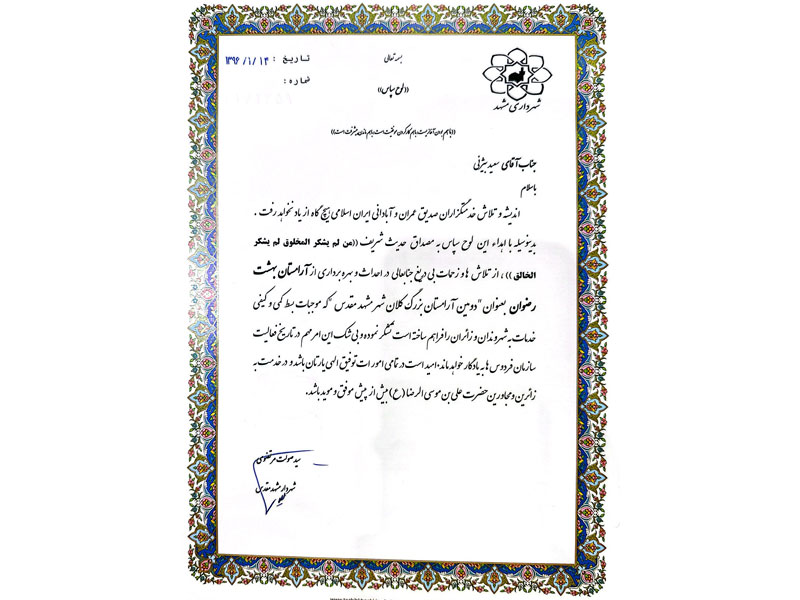 بسمه تعالی
تاریخ : ۱۳۹۶/۱/۱۴
شماره :
شهرداری مشهد
((لوح سپاس))
((با هم بودن آغاز است، با هم کار کردن موفقیت است، با هم ماندن پیشرفت است))
جناب آقای سعید بیژنی
باسلام
اندیشه و تلاش خدمتگزاران صدیق عمران و آبادانی ایران اسلامی هیچ گاه از یاد نخواهد رفت .
بدینوسیله با اهداء این لوح سپاس به مصداق حدیث شریف ((من لم یشکر المخلوق لم یشکر
الخالق)) ، از تلاش ها و زحمات بی دریغ جنابعالی در احداث و بهره برداری از آرامستان بهشت
رضوان بعنوان "دومین آرامستان بزرگ کلان شهر مشهد مقدس" که موجبات بسط کمی و کیفی
خدمات به شهروندان و زائران را فراهم ساخته است تشکر نموده و بی شک این امر مهم در تاریخ فعالیت
سازمان فردوس ها به یادگار خواهد ماند. امید است در تمامی امورات توفیق الهی یارتان باشد و در خدمت به
زائرین و مجاورین حضرت علی بن موسی الرضا (ع) بیش از پیش موفق و موید باشد.
سید صولت مرتضوی
شهردار مشهد مقدس